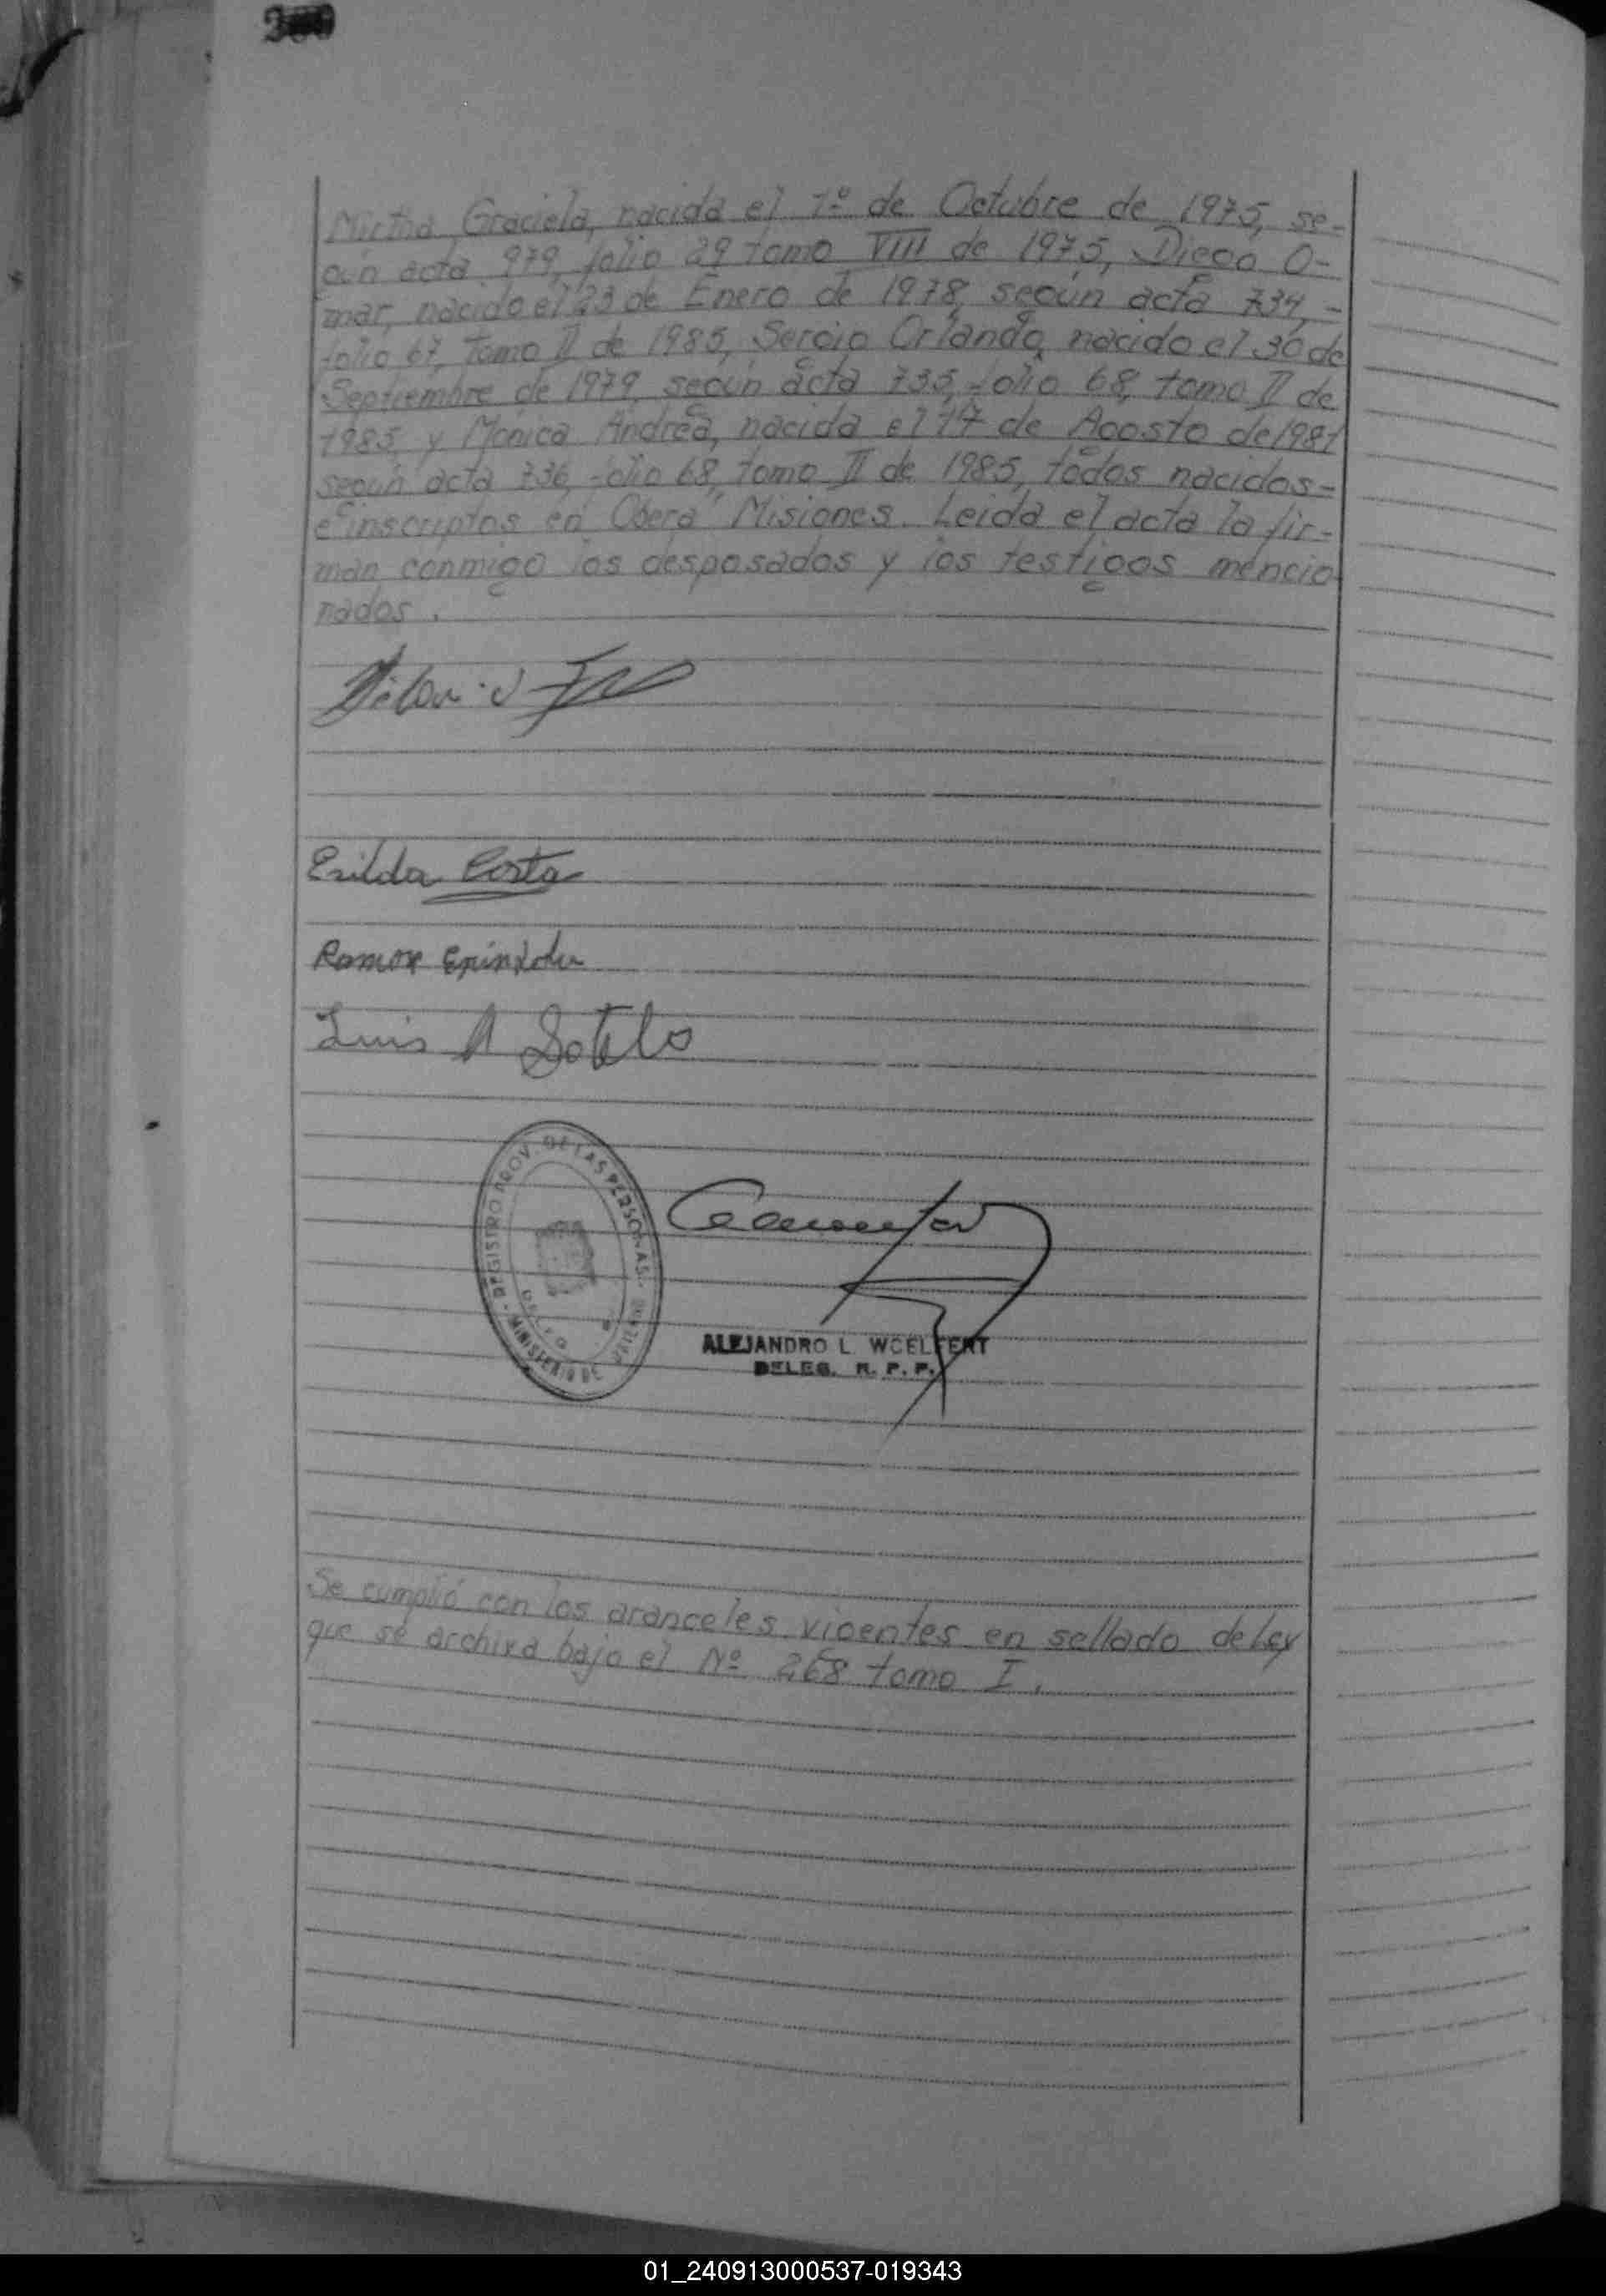 Mirtha Graciela, nacida el 1º de Octubre de 1975, se-
gún acta 979, folio 29 tomo VIII de 1975, Diego O-
mar, nacido el 23 de Enero de 1978, según acta 734, -
folio 67, tomo II de 1985, Sergio Orlando, nacido el 30 de
Septiembre de 1979, según acta 735, folio 68, tomo II de
1985, y Mónica Andrea, nacida el 17 de Agosto de 1981
según acta 736, folio 68, tomo II de 1985, todos nacidos-
e inscriptos en Oberá Misiones. Leida el acta la fir-
man conmigo los desposados y los testigos mencio
nados.
Erilda Costa
Ramon
Luis A Sotelo
REGISTRO PROV. DE LAS PERSONAS.
- MINISTERIO DE GOBIERNO
ALEJANDRO L. WOELFERT
DELEG. R. P. P.
Se cumplió con los aranceles vigentes en sellado de Ley
que se archiva bajo el Nº 268 tomo I.
01_240913000537-019343